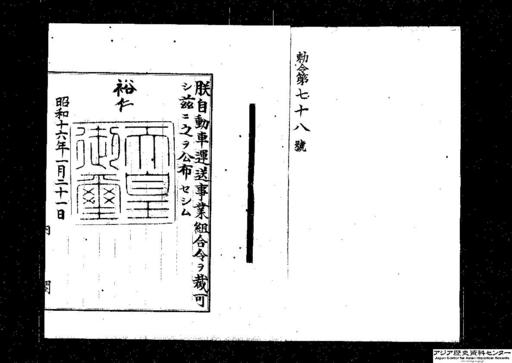 勅令第七十八號
朕自動車運送事業組合令ヲ裁可
シ茲ニ之ヲ公布セシム
裕仁
天皇
御璽
昭和十六年一月二十一日
内閣
アジア歴史資料センター
Japan Center for Asian Historical Records